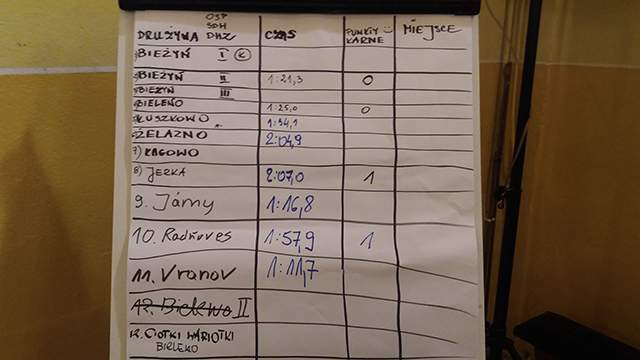 DRUŻYNA OSP SDH DHZ CZAS PUNKTY KARNE MIEJSCE
BIEŻYŃ I K
BIEŻYŃ II 1:21,3 0
BIEŻYŃ III
BIELEŃO 1:25,0 0
ŁUSZKOWO 1:34,1
ŻELAZNO 2:04,9
7) ŁAGOWO
8) JERKA 2:07,0 1
9. Járny 1:16,8
10. Radkoves 1:57,9 1
11. Vranov 1:11,7
12. II
12. CIOTKI WARIOTKI
BIELEKO